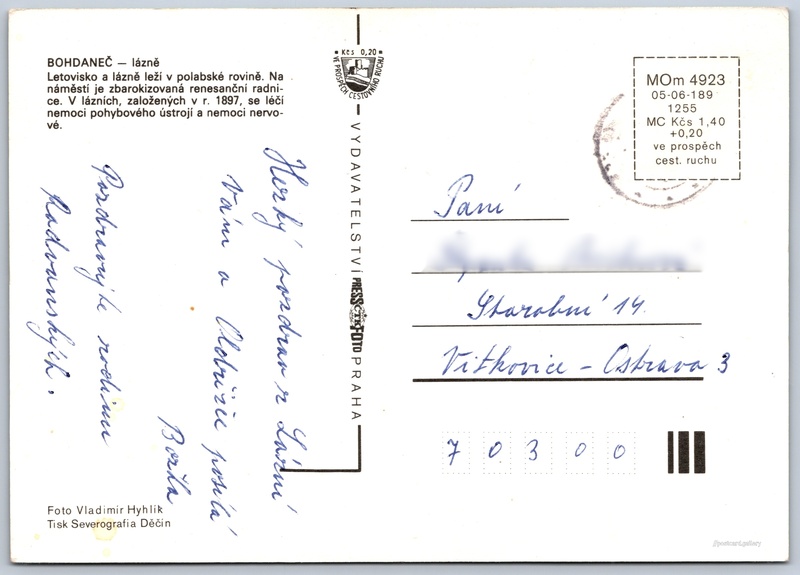 BOHDANEČ — lázně
Letovisko a lázně leží v polabské rovině. Na
náměstí je zbarokizovaná renesanční radni-
ce. V lázních, založených v r. 1897, se léčí
nemoci pohybového ústrojí a nemoci nervo-
vé.
Hezký pozdrav z Lázní
Vám a Oldřiše posílá
Božka
Pozdravujte rodinu
Radvanských.
Foto Vladimír Hyhlík
Tisk Severografia Děčín
Kčs 0,20
VE PROSPĚCH CESTOVNÍHO RUCHU
VYDAVATELSTVÍ PRESSFOTO PRAHA
ČTK
MOm 4923
05-06-189
1255
MC Kčs 1,40
+0,20
ve prospěch
cest. ruchu
Paní
Starobní 14.
Vítkovice - Ostrava 3
70300